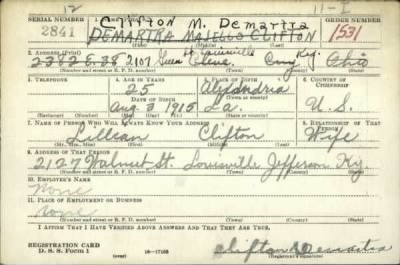 12 11-I
SERIAL NUMBER Clifton M. Demartra ORDER NUMBER
2841 DEMARTRA MAJELLO CLIFTON 1531
2. ADDRESS (Print) Louisville
2382 E. 38 2107 Cleve. Ky. Ohio
(Number and street or R. F. D. number) (Town) (County) (State)
3. TELEPHONE 4. AGE IN YEARS 5. PLACE OF BIRTH 6. COUNTRY OF CITIZENSHIP
25 Alexandria
DATE OF BIRTH (Town or county)
Aug 3 1915 La. U.S.
(Exchange) (No.) (Mo.) (Day) (Yr.) (State or country)
7. NAME OF PERSON WHO WILL ALWAYS KNOW YOUR ADDRESS 8. RELATIONSHIP OF THAT PERSON
Lillian Clifton Wife
(Mr., Mrs., Miss) (First) (Middle) (Last)
9. ADDRESS OF THAT PERSON
2127 Walnut St. Louisville Jefferson Ky.
(Number and street or R. F. D. number) (Town) (County) (State)
10. EMPLOYER'S NAME
None
11. PLACE OF EMPLOYMENT OR BUSINESS
None
(Number and street or R. F. D. number) (Town) (County) (State)
I AFFIRM THAT I HAVE VERIFIED ABOVE ANSWERS AND THAT THEY ARE TRUE.
REGISTRATION CARD
D. S. S. Form 1 (over) 16-17105 Clifton Demartra
(Registrant's signature)